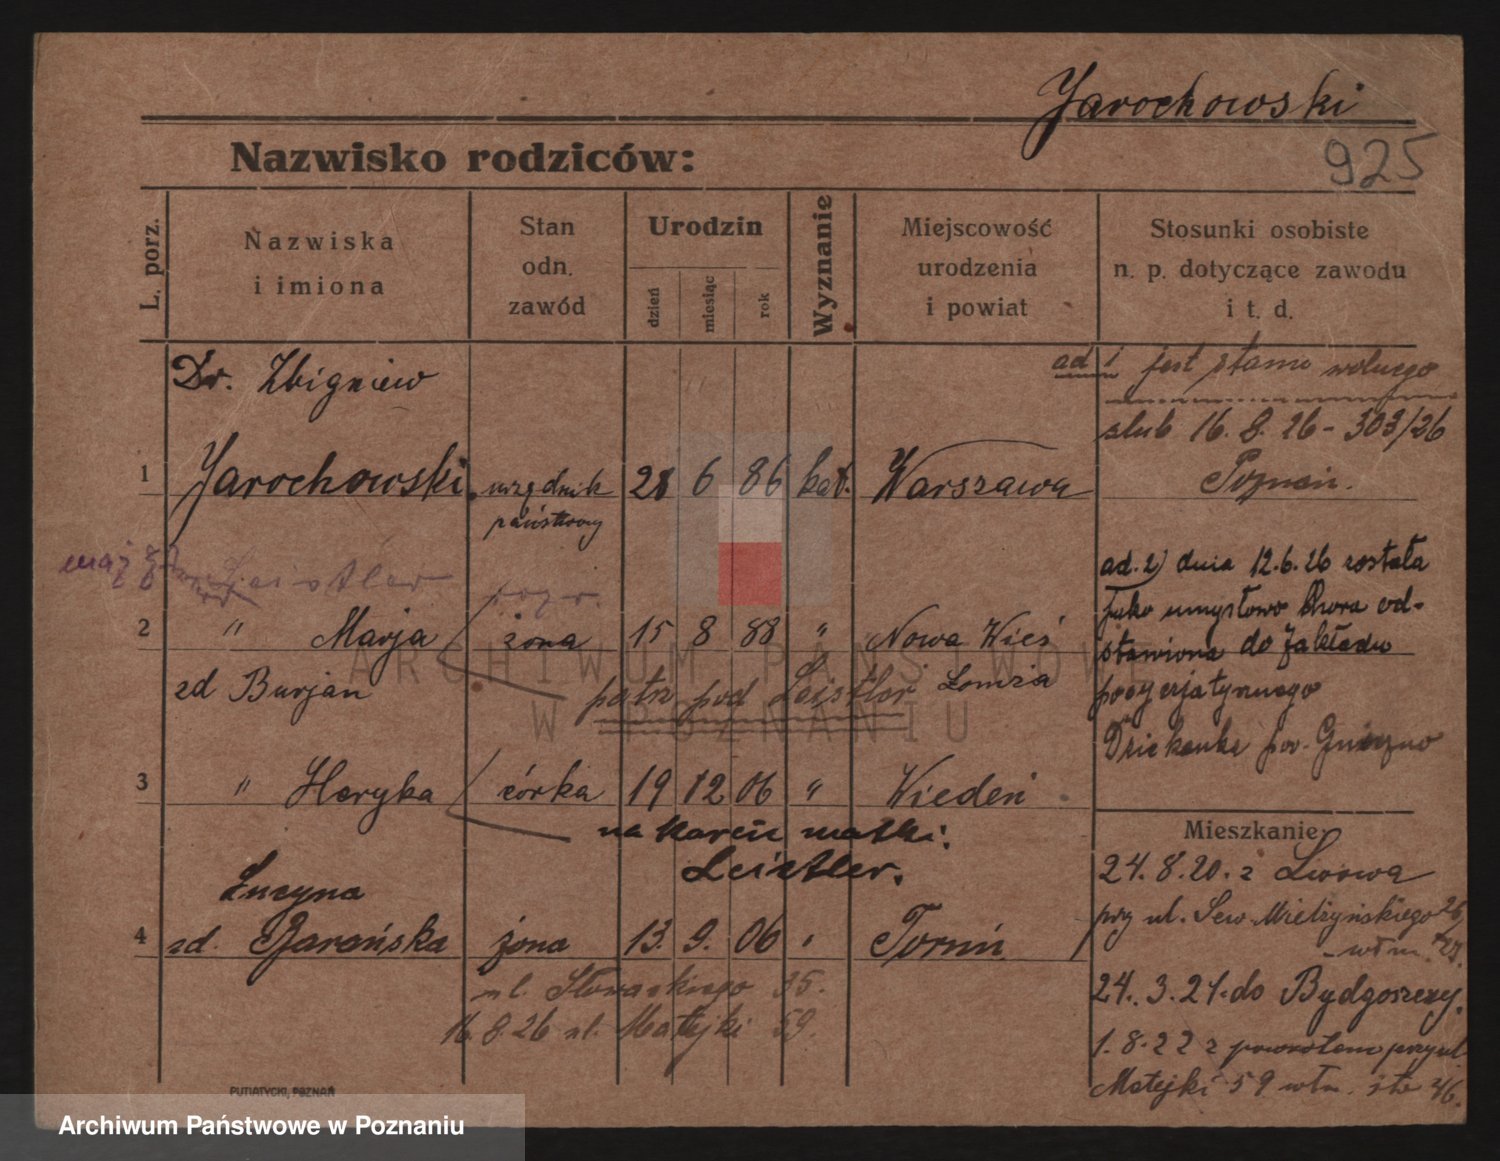 Jarochowski
925
Nazwisko rodziców:
L. porz.
Nazwiska
i imiona
Stan
odn.
zawód
Urodzin
dzień
miesiąc
rok
Wyznanie
Miejscowość
urodzenia
i powiat
Stosunki osobiste
n. p. dotyczące zawodu
i t. d.
ad 1 jest stanu wolnego
ślub 16.8.26 - 303/26
Poznań.
Dr. Zbigniew
1 Jarochowski urzędnik 28 6 86 kat. Warszawa
państwowy
mąż Leistler rozw.
2 " Marja żona 15 8 88 " Nowa Wieś
zd Burjan patrz pod Leistler Łomża
ad. 2) dnia 12.6.26 została
jako umysłowo chora od-
stawiona do Zakładu
psychjatrycznego
Dziekanka pow. Gniezno
3 " Heryka córka 19 12 06 " Wiedeń
na karcie matki:
Leistler.
Łucyna
4 zd. Barańska żona 13. 9. 06 " Toruń
ul. Słowackiego 35.
16.8.26 ul. Matejki 59.
Mieszkanie:
24.8.20. z Lwowa
przy ul. Sew. Mielżyńskiego 26/27.
- włm.
24. 3. 21. do Bydgoszczy.
1.8.22 z powrotem przy ul.
Matejki 59 włm.
PUTIATYCKI, POZNAŃ
ARCHIWUM PAŃSTWOWE
W POZNANIU
Archiwum Państwowe w Poznaniu